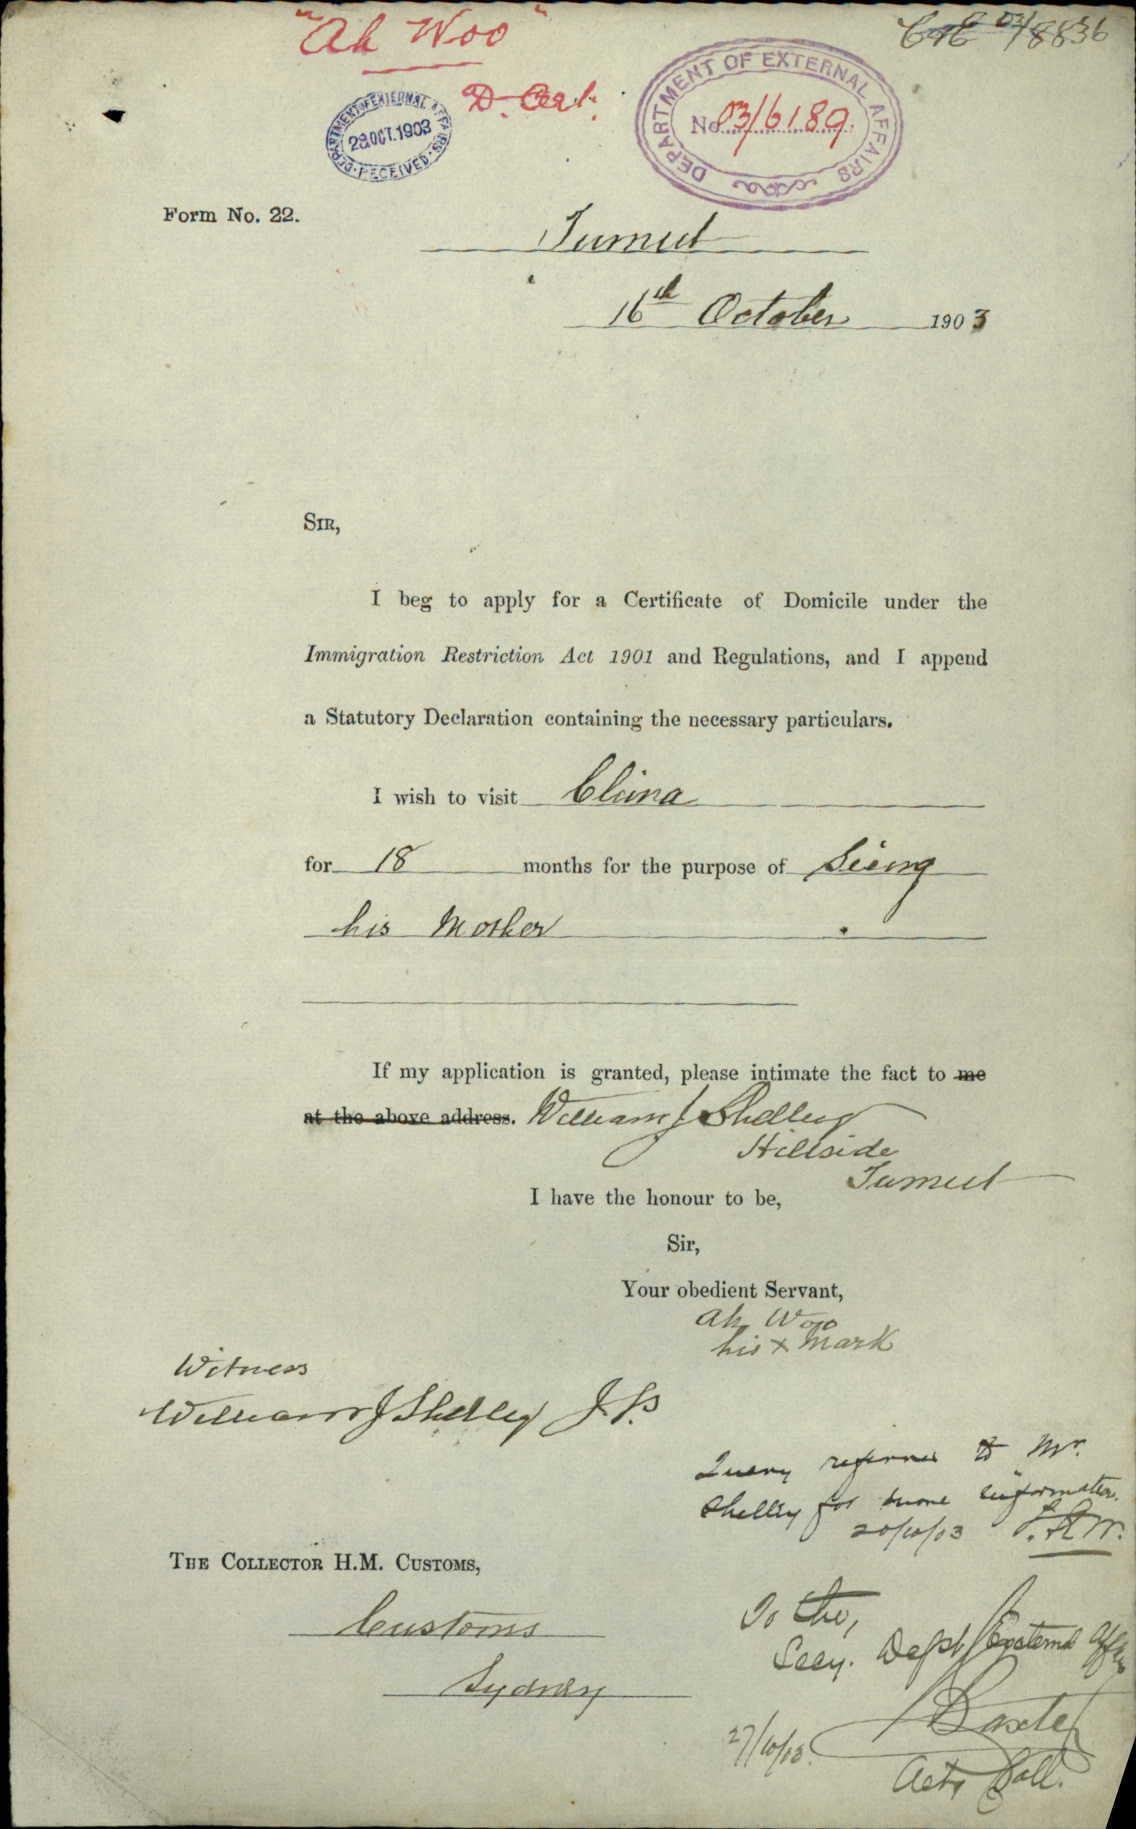 "Ah Woo"
D. Cert.
DEPARTMENT OF EXTERNAL AFFAIRS
28 OCT. 1903
RECEIVED
DEPARTMENT OF EXTERNAL AFFAIRS
No 03/6189
03/8836
Form No. 22.
Tumut
16th October 1903
SIR,
I beg to apply for a Certificate of Domicile under the
Immigration Restriction Act 1901 and Regulations, and I append
a Statutory Declaration containing the necessary particulars.
I wish to visit China
for 18 months for the purpose of Sieing
his Mother
If my application is granted, please intimate the fact to me
at the above address. William J Shelley
Hillside
Tumut
I have the honour to be,
Sir,
Your obedient Servant,
Ah Woo
his x Mark
Witness
William J Shelley J.P.
Query referred to Mr.
Shelley for more information.
20/10/03
THE COLLECTOR H.M. CUSTOMS,
Customs
Sydney
To the,
Secy. Dept External Affairs
Baxter
27/10/03.
Actg Coll.